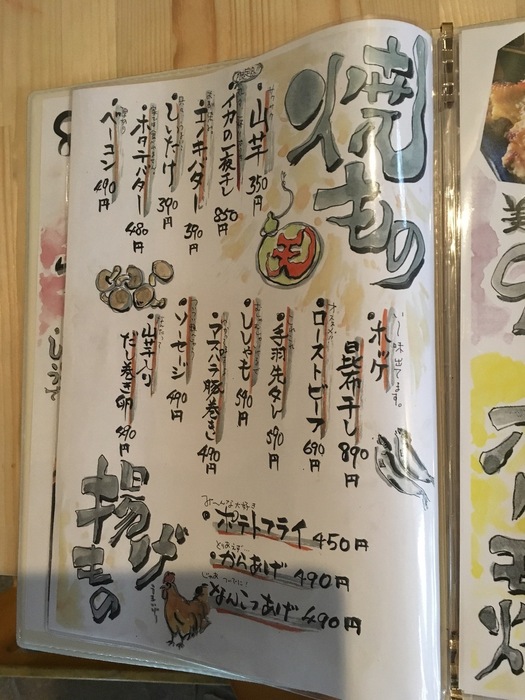 焼もの
・山芋 350円
・イカの一夜干し 850円
・エノキバター 390円
・しいたけ 390円
・ホタテバター 480円
・ベーコン 490円
いい味出てます。
・ホッケ
昆布干し 890円
オススメ!!
・ローストビーフ 690円
・手羽先タレ 590円
・ししゃも 590円
・アスパラ豚巻き 490円
・ソーセージ 490円
・山芋入り
だし巻き卵 490円
揚げもの
みーんな大好き
・ポテトフライ 450円
とりあえず…
・からあげ 490円
・なんこつあげ 490円